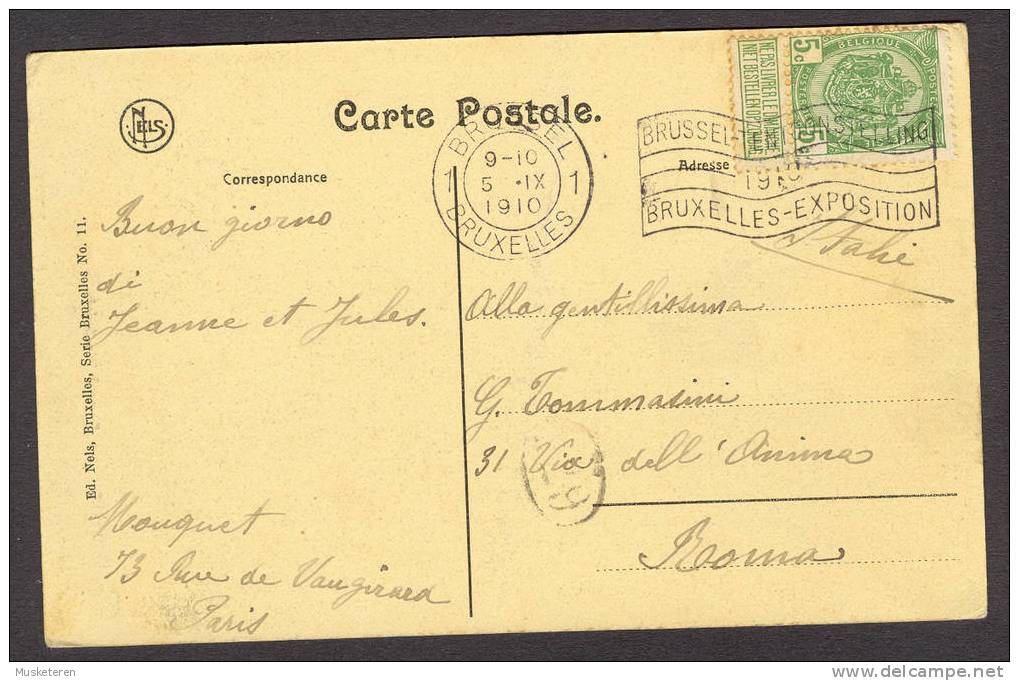 NELS
Carte Postale.
Correspondance
Adresse
BRUSSEL
9-10
5 ·IX
1910
1 1
BRUXELLES
BRUSSEL-TENTOONSTELLING
1910
BRUXELLES-EXPOSITION
BELGIQUE
5c
NE PAS LIVRER LE DIMANCHE
NIET BESTELLEN OP ZONDAG
Buon giorno
di
Jeanne et Jules.
Mouquet
73 Rue de Vaugirard
Paris
Italie
Alla gentillissima
G. Tommasini
31 Via dell' Anima
Roma
Ed. Nels, Bruxelles, Serie Bruxelles No. 11.
Musketeren
www.delcampe.net